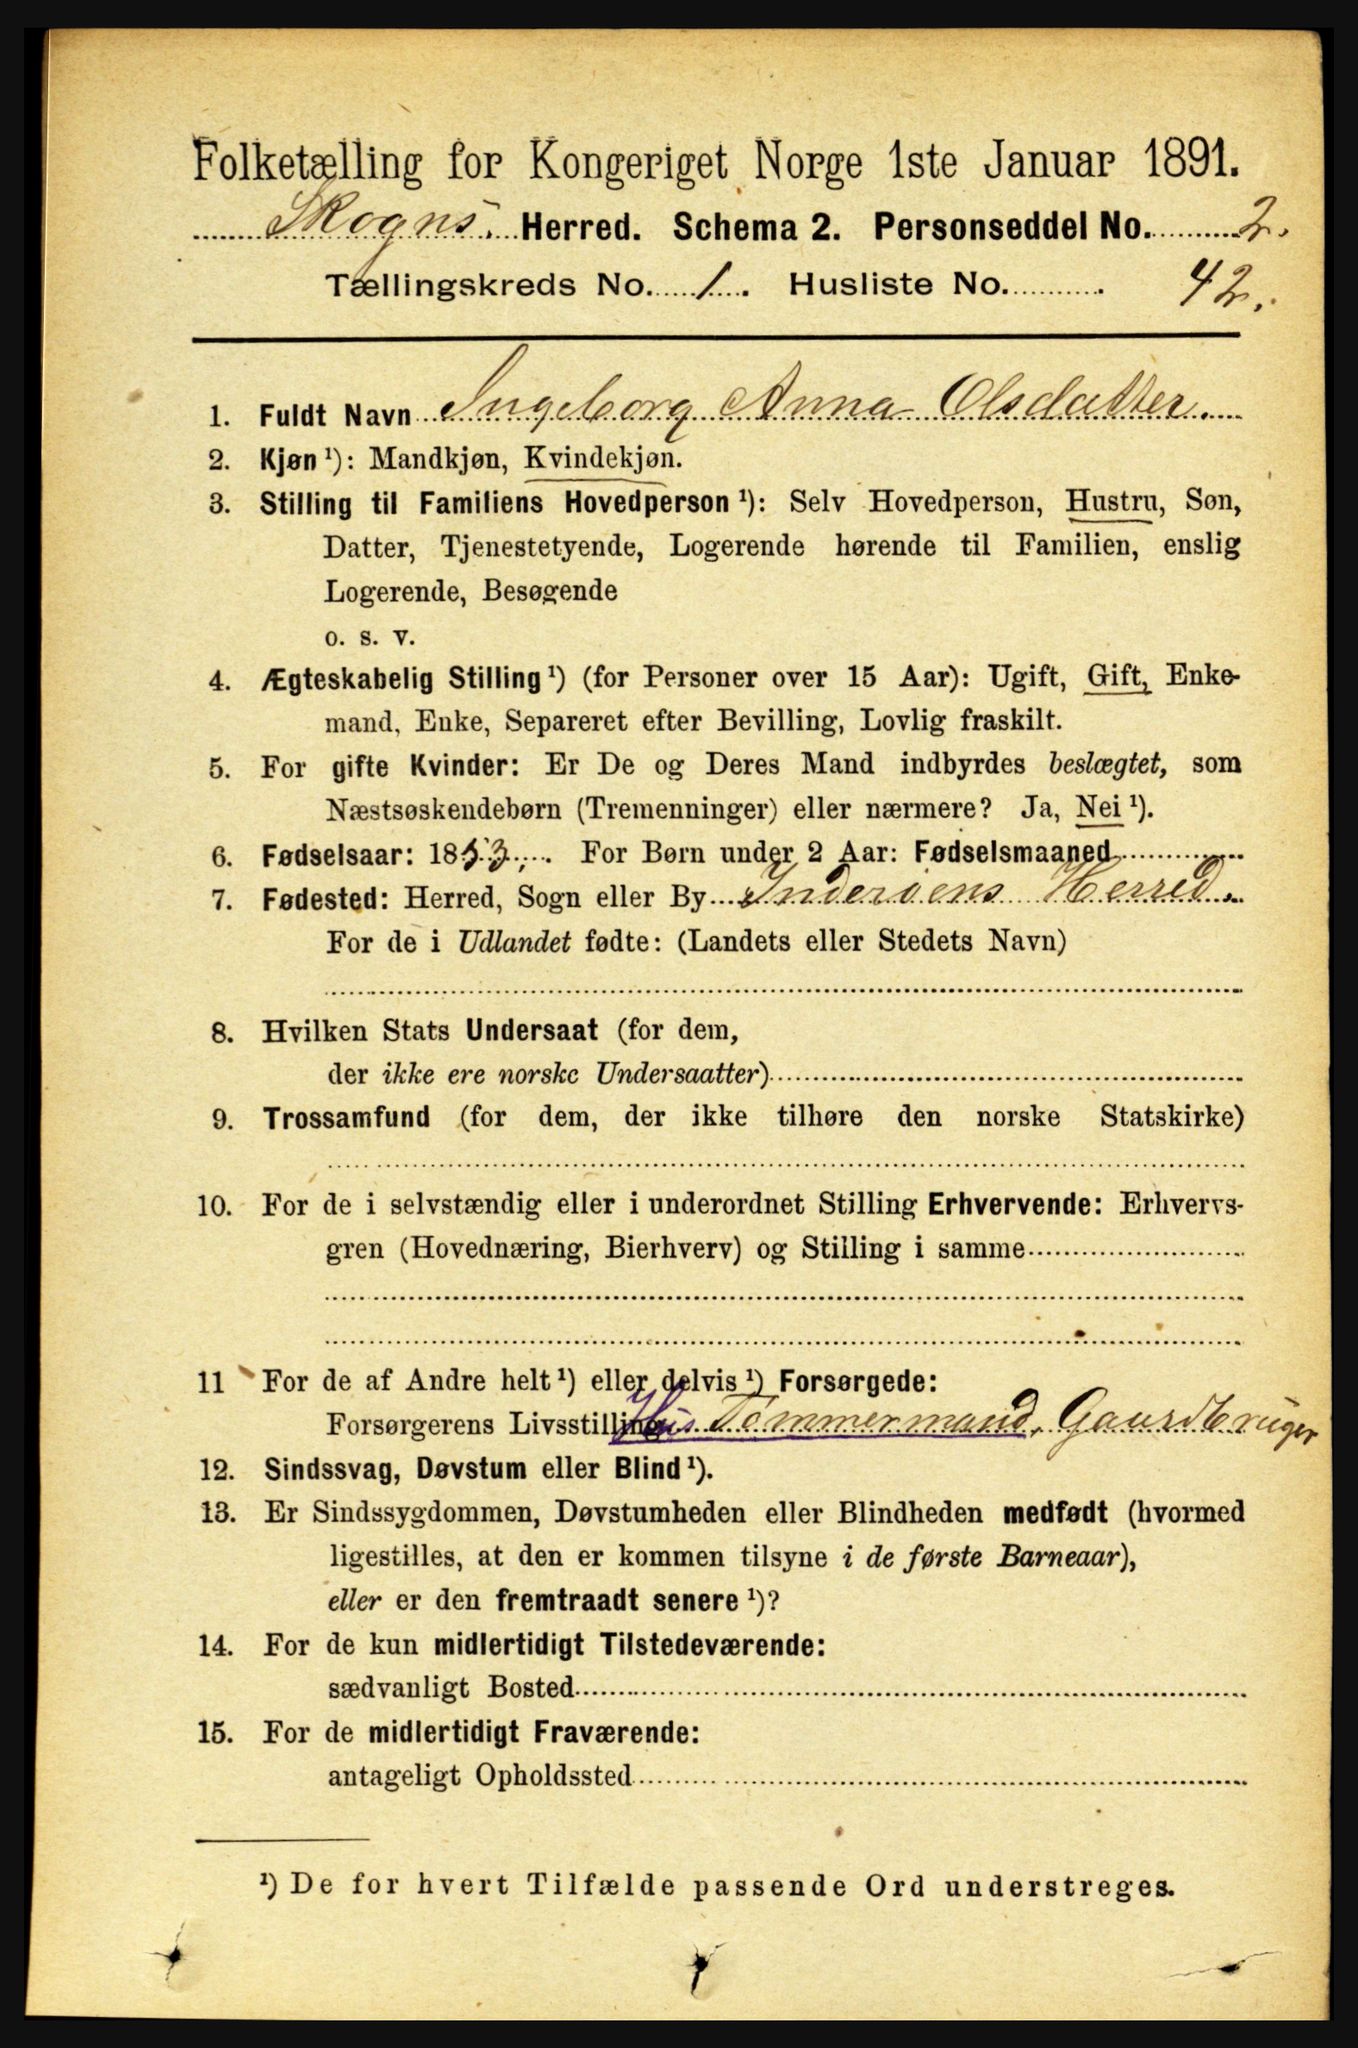 Folketælling for Kongeriget Norge 1ste Januar 1891.
Skogns. Herred. Schema 2. Personseddel No. 2.
Tællingskreds No. 1. Husliste No. 42.
1. Fuldt Navn Ingeborg Anna Olsdatter.
2. Kjøn ¹): Mandkjøn, Kvindekjøn.
3. Stilling til Familiens Hovedperson ¹): Selv Hovedperson, Hustru, Søn,
Datter, Tjenestetyende, Logerende hørende til Familien, enslig
Logerende, Besøgende
o. s. v.
4. Ægteskabelig Stilling ¹) (for Personer over 15 Aar): Ugift, Gift, Enke-
mand, Enke, Separeret efter Bevilling, Lovlig fraskilt.
5. For gifte Kvinder: Er De og Deres Mand indbyrdes beslægtet, som
Næstsøskendebørn (Tremenninger) eller nærmere? Ja, Nei ¹).
6. Fødselsaar: 1853. For Børn under 2 Aar: Fødselsmaaned
7. Fødested: Herred, Sogn eller By Inderøens Herred.
For de i Udlandet fødte: (Landets eller Stedets Navn)
8. Hvilken Stats Undersaat (for dem,
der ikke ere norske Undersaatter)
9. Trossamfund (for dem, der ikke tilhøre den norske Statskirke)
10. For de i selvstændig eller i underordnet Stilling Erhvervende: Erhvervs-
gren (Hovednæring, Bierhverv) og Stilling i samme
11 For de af Andre helt ¹) eller delvis ¹) Forsørgede:
Forsørgerens Livsstilling Hus Tømmermand, Gaardbruger
12. Sindssvag, Døvstum eller Blind ¹).
13. Er Sindssygdommen, Døvstumheden eller Blindheden medfødt (hvormed
ligestilles, at den er kommen tilsyne i de første Barneaar),
eller er den fremtraadt senere ¹)?
14. For de kun midlertidigt Tilstedeværende:
sædvanligt Bosted
15. For de midlertidigt Fraværende:
antageligt Opholdssted
¹) De for hvert Tilfælde passende Ord understreges.